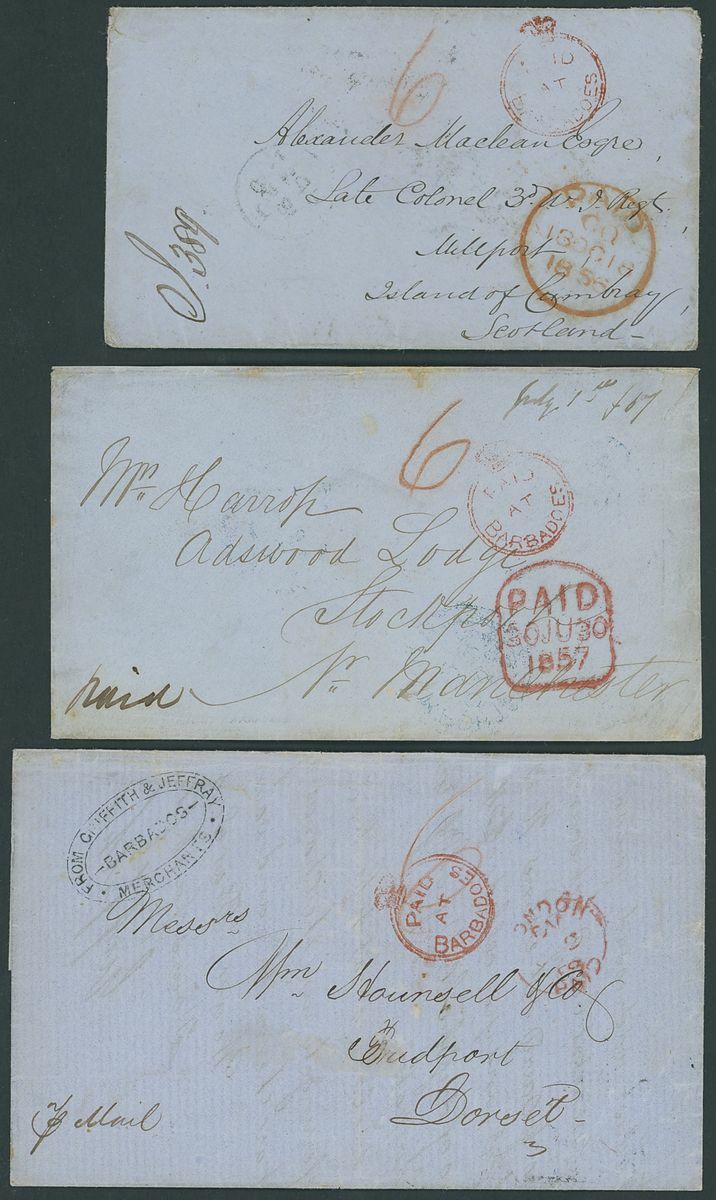 6
PAID
AT
BARBADOES
Alexander Maclean Esqre,
Late Colonel 3d. W. I. Regt,
Millport,
Island of Combray,
Scotland-
S.389
PAID
1856
July 1st /57
6
PAID
AT
BARBADOES
Mrs. Harrop
Adswood Lodge
Stockport
Nr. Manchester
paid
PAID
30JU30
1857
FROM GRIFFITH & JEFFRAY
-BARBADOS-
MERCHANTS
6
PAID
AT
BARBADOES
LONDON
PAID
Messrs
Wm Hounsell & Co.
Bridport
Dorset-
Mail